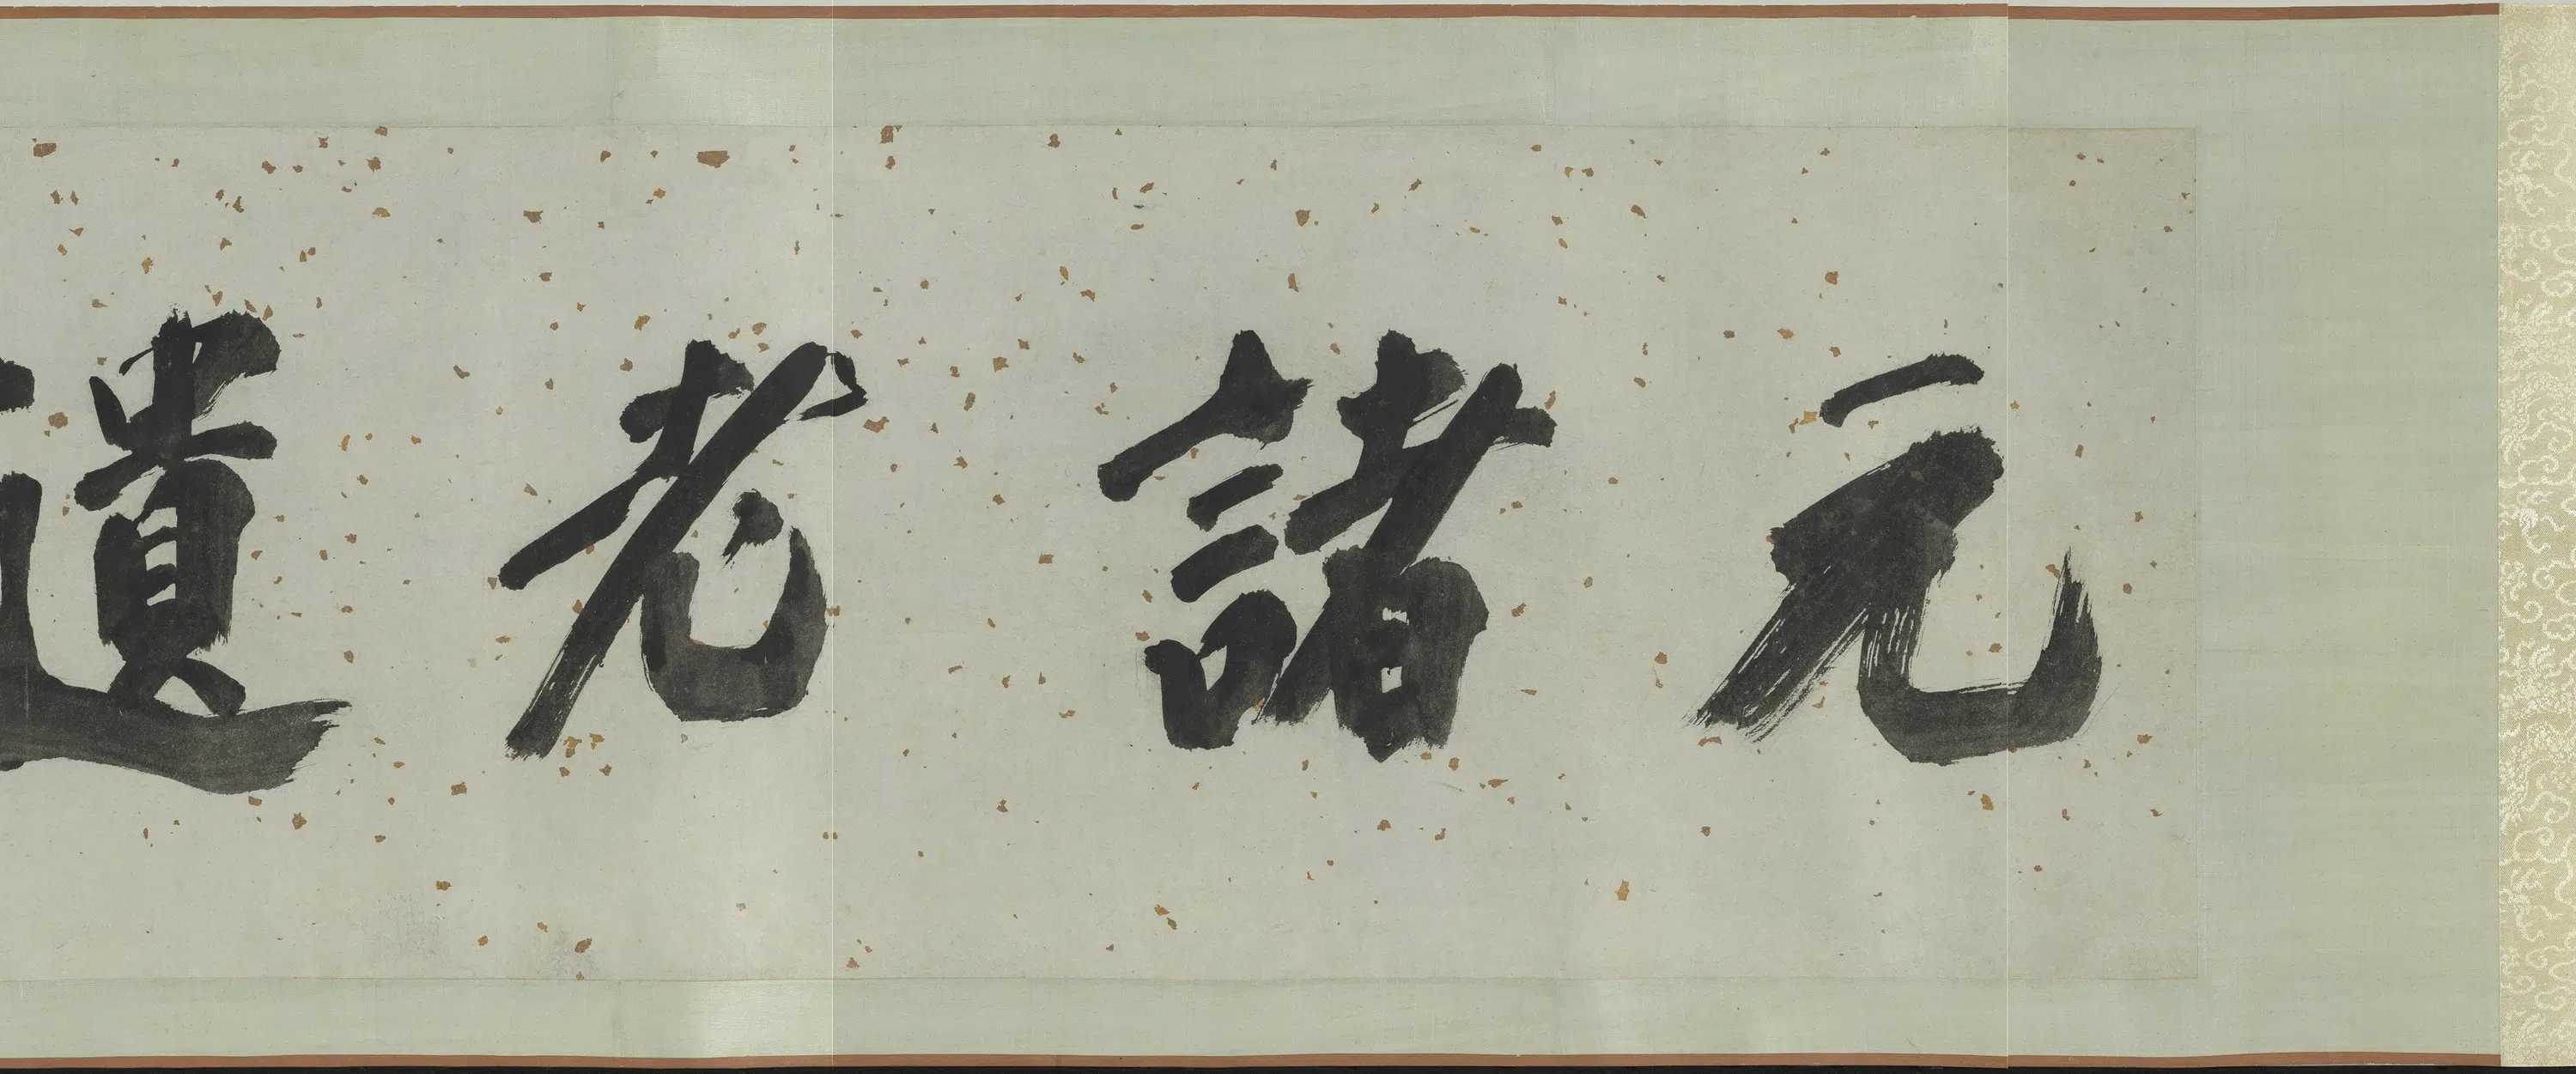 元諸老遺